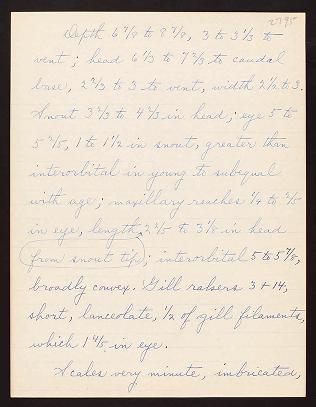 2795
Depth 6 7/8 to 8 7/8, 3 to 3 1/3 to
vent; head 6 1/3 to 7 2/3 to caudal
base, 2 2/3 to 3 to vent, width 2 1/2 to 3.
Snout 3 2/3 to 4 2/3 in head; eye 5 to
5 2/5, 1 to 1 1/2 in snout, greater than
interorbital in young to subequal
with age; maxillary reaches 1/4 to 2/5
in eye, length 2 2/5 to 3 1/8 in head
from snout tip; interorbital 5 to 5 7/8,
broadly convex. Gill rakers 3 + 14,
short, lanceolate, 1/2 of gill filaments,
which 1 4/5 in eye.
Scales very minute, imbricated,